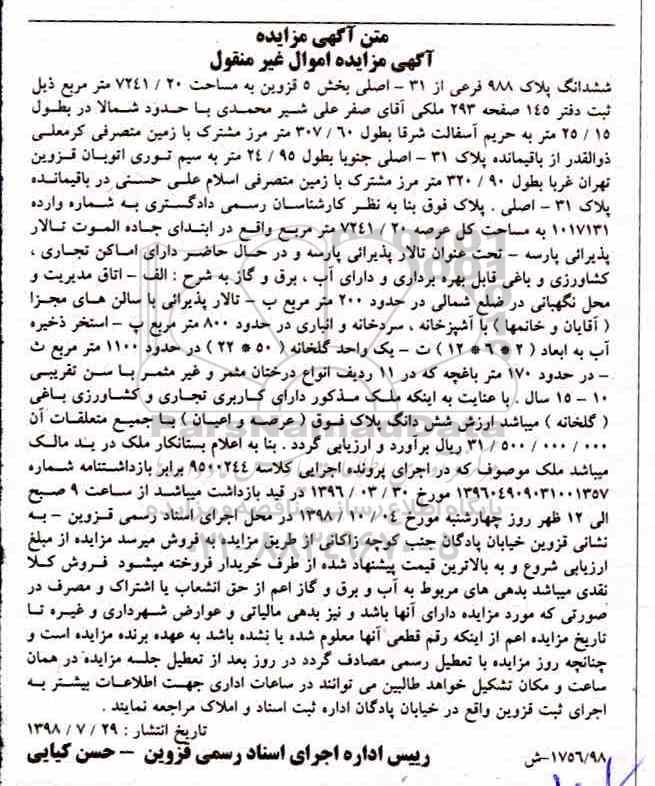 متن آگهی مزایده
آگهی مزایده اموال غیر منقول
ششدانگ پلاک ۹۸۸ فرعی از ۳۱ - اصلی بخش ۵ قزوین به مساحت ۲۰ / ۷۲۴۱ متر مربع ذیل
ثبت دفتر ۱۴۵ صفحه ۲۹۳ ملکی آقای صفر علی شیر محمدی با حدود شمالا در بطول
۱۵ / ۲۵ متر به حریم آسفالت شرقا بطول ۶۰ / ۳۰۷ متر مرز مشترک با زمین متصرفی کرمعلی
ذوالقدر از باقیمانده پلاک ۳۱ - اصلی جنوبا بطول ۹۵ / ۲۴ متر به سیم توری اتوبان قزوین
تهران غربا بطول ۹۰ / ۳۲۰ متر مرز مشترک با زمین متصرفی اسلام علی حسنی در باقیمانده
پلاک ۳۱ - اصلی . پلاک فوق بنا به نظر کارشناسان رسمی دادگستری به شماره وارده
۱۰۱۷۱۳۱ به مساحت کل عرصه ۲۰ / ۷۲۴۱ متر مربع واقع در ابتدای جاده الموت تالار
پذیرائی پارسه - تحت عنوان تالار پذیرائی پارسه و در حال حاضر دارای اماکن تجاری ،
کشاورزی و باغی قابل بهره برداری و دارای آب ، برق و گاز به شرح : الف - اتاق مدیریت و
محل نگهبانی در ضلع شمالی در حدود ۲۰۰ متر مربع ب - تالار پذیرائی با سالن های مجزا
( آقایان و خانمها ) با آشپزخانه ، سردخانه و انباری در حدود ۸۰۰ متر مربع پ - استخر ذخیره
آب به ابعاد ( ۲ * ۶ * ۱۲ ) ت - یک واحد گلخانه ( ۵۰ * ۲۲ ) در حدود ۱۱۰۰ متر مربع ث
- در حدود ۱۷۰ متر باغچه که در ۱۱ ردیف انواع درختان مثمر و غیر مثمر با سن تقریبی
۱۰ - ۱۵ سال . با عنایت به اینکه ملک مذکور دارای کاربری تجاری و کشاورزی باغی
( گلخانه ) میباشد ارزش شش دانگ پلاک فوق ( عرصه و اعیان ) با جمیع متعلقات آن
۰۰۰ / ۰۰۰ / ۵۰۰ / ۳۱ ریال برآورد و ارزیابی گردد . بنا به اعلام بستانکار ملک در ید مالک
میباشد ملک موصوف که در اجرای پرونده اجرایی کلاسه ۹۵۰۰۲۴۴ برابر بازداشتنامه شماره
۱۳۹۶۰۴۹۰۹۰۳۱۰۰۱۳۵۷ مورخ ۳۰ / ۰۳ / ۱۳۹۶ در قید بازداشت میباشد از ساعت ۹ صبح
الی ۱۲ ظهر روز چهارشنبه مورخ ۰۴ / ۱۰ / ۱۳۹۸ در محل اجرای اسناد رسمی قزوین - به
نشانی قزوین خیابان پادگان جنب کوچه زاکانی از طریق مزایده به فروش میرسد مزایده از مبلغ
ارزیابی شروع و به بالاترین قیمت پیشنهاد شده از طرف خریدار فروخته میشود فروش کلا
نقدی میباشد بدهی های مربوط به آب و برق و گاز اعم از حق انشعاب یا اشتراک و مصرف در
صورتی که مورد مزایده دارای آنها باشد و نیز بدهی مالیاتی و عوارض شهرداری و غیره تا
تاریخ مزایده اعم از اینکه رقم قطعی آنها معلوم شده یا نشده باشد به عهده برنده مزایده است و
چنانچه روز مزایده با تعطیل رسمی مصادف گردد در روز بعد از تعطیل جلسه مزایده در همان
ساعت و مکان تشکیل خواهد طالبین می توانند در ساعات اداری جهت اطلاعات بیشتر به
اجرای ثبت قزوین واقع در خیابان پادگان اداره ثبت اسناد و املاک مراجعه نمایند .
تاریخ انتشار : ۲۹ / ۷ / ۱۳۹۸
رییس اداره اجرای اسناد رسمی قزوین - حسن کیایی
۱۷۵۶/۹۸-ش
ParsNamadData
پایگاه اطلاع رسانی مناقصه و مزایده